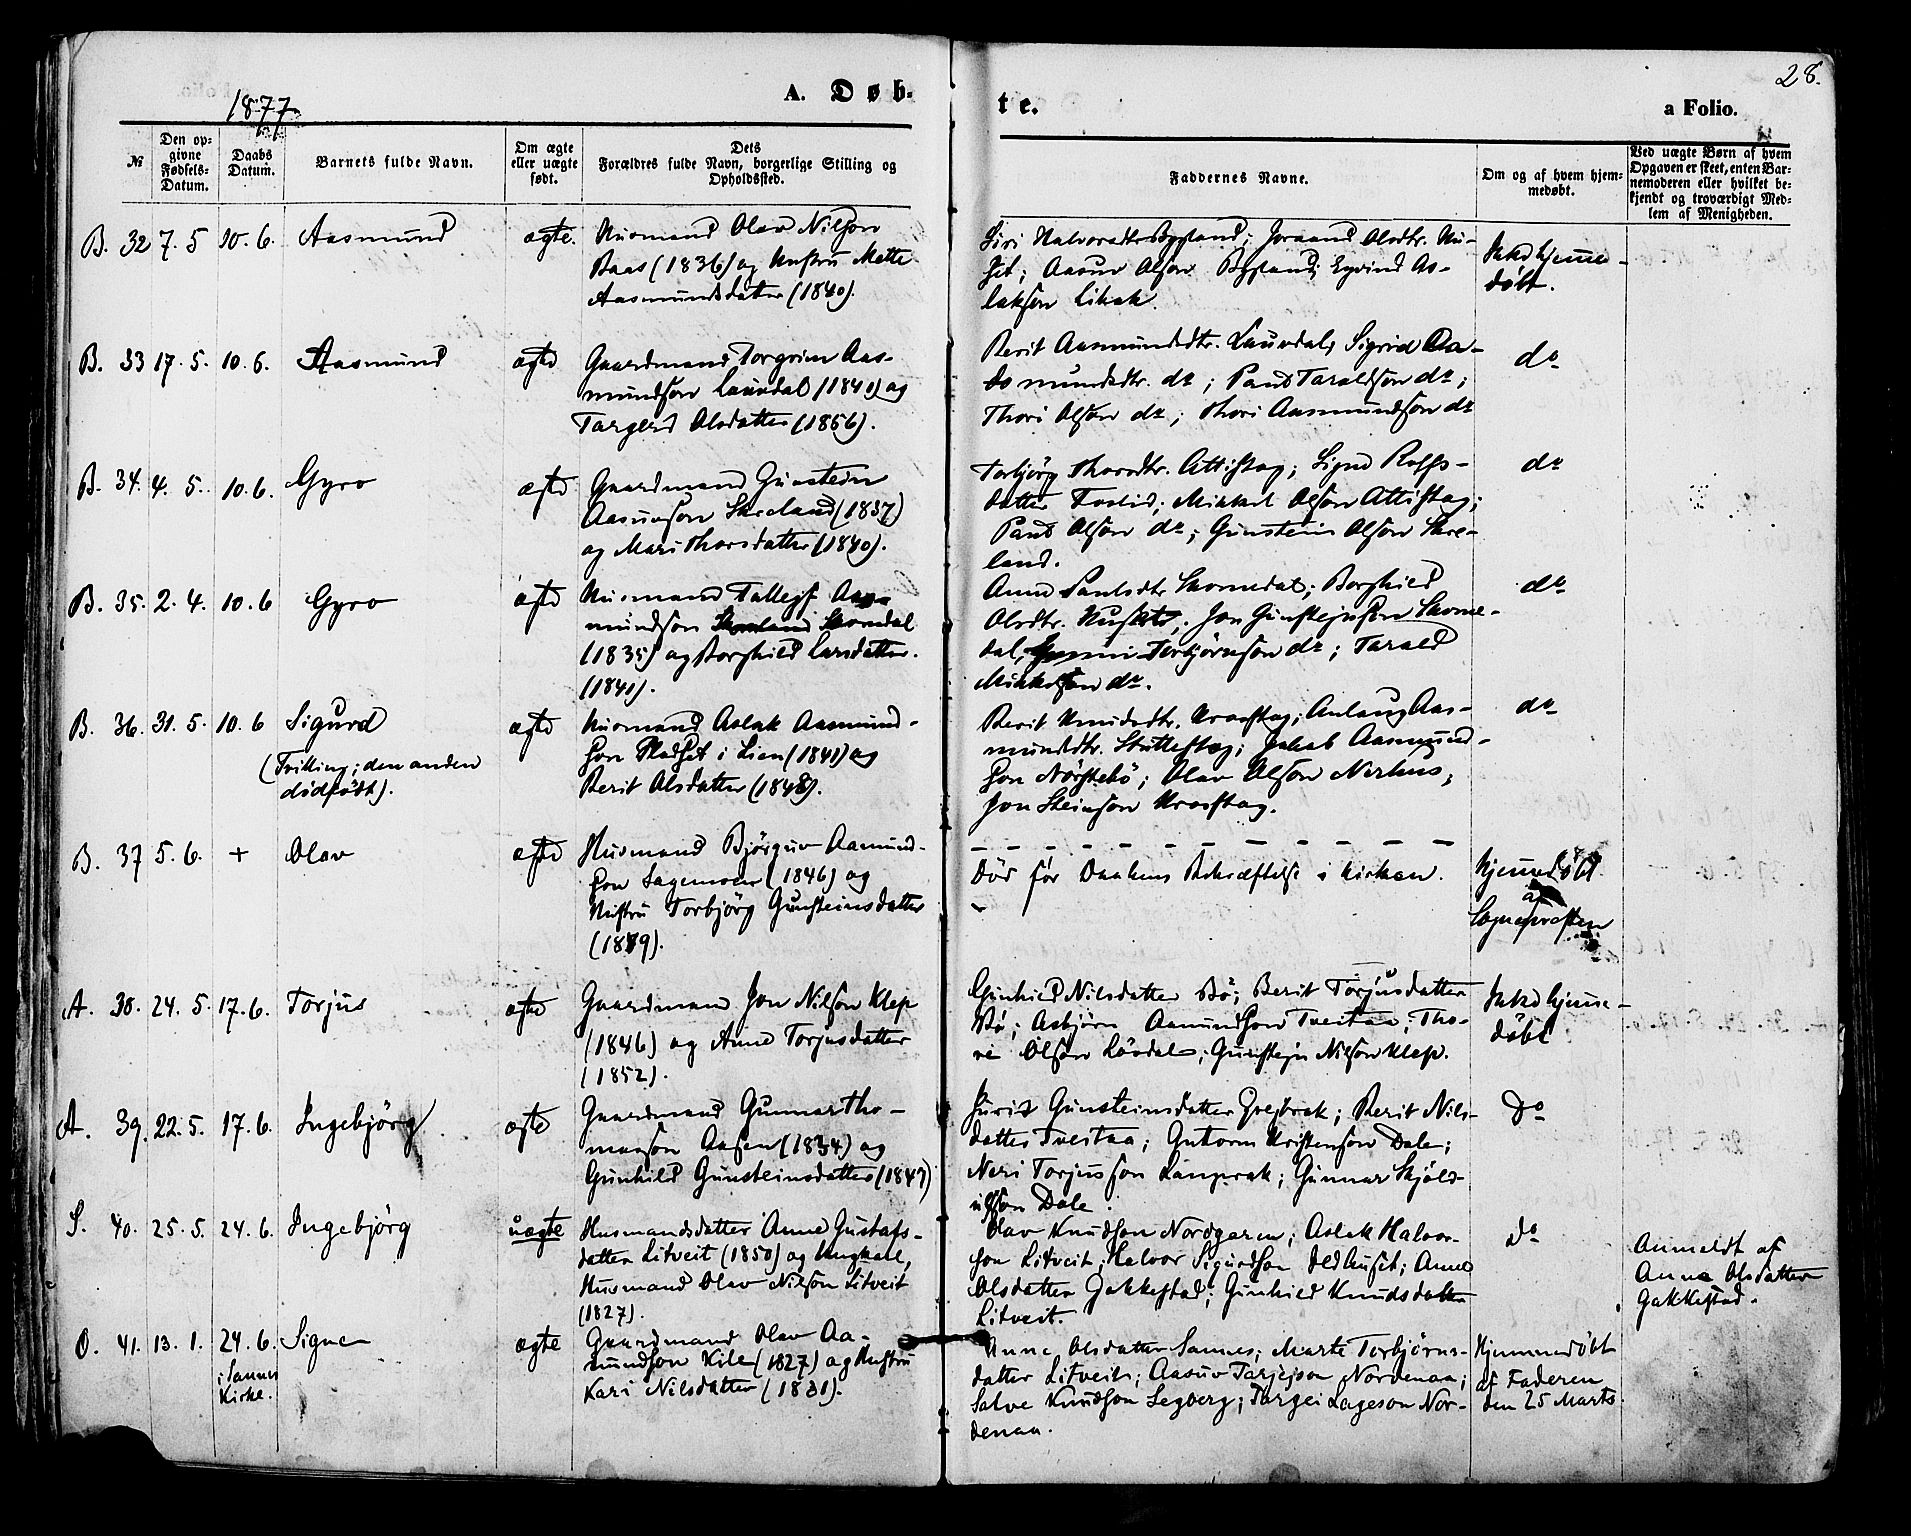 28.
1877
A. Døb-
te.
a Folio.
№
Den op-
givne
Fødsels-
Datum.
Daabs
Datum.
Barnets fulde Navn.
Om ægte
eller uægte
født.
Dets
Forældres fulde Navn, borgerlige Stilling og
Opholdssted.
Faddernes Navne.
Om og af hvem hjem-
medøbt.
Ved uægte Børn af hvem
Opgaven er skeet, enten Bar-
nemoderen eller hvilket be-
kjendt og troværdigt Med-
lem af Menigheden.
B. 32 7. 5 10. 6. Aasmund ægte.
Husmand Olav Nilson
Baas (1836) og Hustru Mette
Aasmundsdatter (1840).
Siri Halvorsdtr. Bygland; Joraand Olsdtr. Hu-
set; Aasuv Olson Bygland; Eyvind As-
lakson Litvek.
Ikke hjemme-
døbt.
B. 33 17. 5. 10. 6. Aasmund ægte
Gaardmand Torgrim Aas-
mundson Lauvdal (1840) og
Targerd Olsdatter (1856).
Berit Aasmundsdtr. Lauvdal; Sigrid Aa-
mundsdtr. do; Paul Taraldson do;
Thori Olson do; Thori Aasmundson do
do
B. 34. 4. 5. 10. 6. Gyro ægte
Gaardmand Gunstein
Aasuvson Skreland (1837)
og Mari Thorsdatter (1840).
Torbjörg Thorsdtr. Attistog; Signe Rolfs-
datter Tvelid; Mikkel Olson Attistog;
Paul Olson do; Gunstein Olson Skre-
land.
do
B. 35. 2. 4. 10. 6 Gyro ægte
Husmand Tallegf Aas-
mundson Skomdal
(1835) og Borghild Larsdatter.
(1841).
Anne Paulsdtr Skomedal; Borghild
Olsdtr. Jon Gunsteinson Skome-
dal, Torbjörnson do; Tarald
Mikkelson do.
do
B. 36. 31. 5. 10. 6 Sigurd
(Tvilling; den anden
dödfödt).
ægte
Husmand Aslak Aasmund-
son Pladset i Lien (1841) og
Berit Olsdatter (1848).
Berit Knudsdtr. Uvestog; Anlaug Aas-
mundsdtr. Stullestog; Jakob Aasmund-
son Nörstebö; Olav Olson Nerhus;
Jon Steinson Uvestog.
do
B. 37 5. 6. + Olav ægte
Husmand Björguv Aamund-
son Sagemoen (1846) og
Hustru Torbjörg Gunsteinsdatter
(1849).
Död för Daabens Bekræftelse i Kirken.
Hjemmedöbt
af
Sognepresten
A. 38. 24. 5. 17. 6. Torjus ægte
Gaardmand Jon Nilson Klep
(1846) og Anne Torjusdatter
(1852).
Gunhild Nilsdatter Bö; Berit Torjusdatter
Bö; Asbjörn Aamundson Tveitaa; Tho-
re Olson Lövdal; Gunstein Nilson Klep.
Ikke hjemme-
döbt
A. 39. 22. 5. 17. 6. Ingebjörg ægte
Gaardmand Gunnar Tho-
masson Aasen (1834) og
Gunhild Gunsteinsdatter (1847)
Juri Gunsteinsdatter; Berit Nils-
datter Tveitaa; Gutorm Kristenson Dale;
Neri Torjusson Langerak; Gunnar Skjöld-
ulfson Dale.
Do
S. 40. 25. 5. 24. 6. Ingebjörg uægte
Husmandsdatter Anne Gustafs-
datter Litveit (1850) og Ungkarl,
Husmand Olav Nilson Litveit
(1827).
Olav Knudson Nordgaren; Aslak Halvor-
son Litveit; Halvor Sigurdson Oedhuset; Anne
Olsdatter Gakkestad; Gunhild Knudsdatter
Litveit.
do
Anmeldt af
Anne Olsdatter
Gakkestad.
O. 41. 13. 1. 24. 6.
i Sannes
Kirke.
Signe ægte
Gaardmand Olav Aa-
mundson Kile (1827) og Hustru
Kari Nilsdatter (1831).
Anne Olsdatter Sannes; Marte Torbjörns-
datter Litveit; Aasuv Tarjeison Nordenaa;
Salve Knudson Legberg; Targei Lageson Nor-
denaa.
Hjemmedöbt
af Faderen
den 25 Marts.